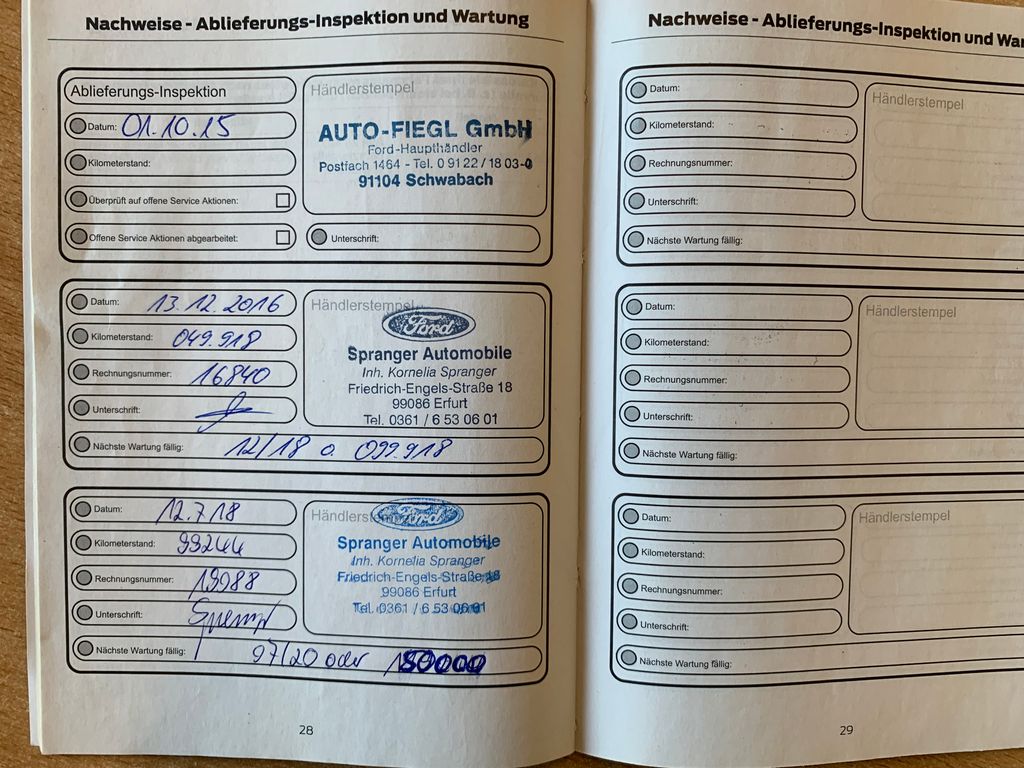 Nachweise - Ablieferungs-Inspektion und Wartung
Ablieferungs-Inspektion
Datum: 01.10.15
Kilometerstand:
Überprüft auf offene Service Aktionen:
Offene Service Aktionen abgearbeitet:
Händlerstempel
AUTO-FIEGL GmbH
Ford-Haupthändler
Postfach 1464 - Tel. 0 91 22 / 18 03-0
91104 Schwabach
Unterschrift:
Datum: 13.12.2016
Kilometerstand: 049.918
Rechnungsnummer: 16840
Unterschrift:
Nächste Wartung fällig: 12/18 o. 099.918
Händlerstempel
Ford
Spranger Automobile
Inh. Kornelia Spranger
Friedrich-Engels-Straße 18
99086 Erfurt
Tel. 0361 / 6 53 06 01
Datum: 12.7.18
Kilometerstand: 99244
Rechnungsnummer: 19088
Unterschrift:
Nächste Wartung fällig: 07/20 oder 150000
Händlerstempel
Ford
Spranger Automobile
Inh. Kornelia Spranger
Friedrich-Engels-Straße 18
99086 Erfurt
Tel. 0361 / 6 53 06 01
28
Nachweise - Ablieferungs-Inspektion und War
Datum:
Kilometerstand:
Rechnungsnummer:
Unterschrift:
Nächste Wartung fällig:
Händlerstempel
Datum:
Kilometerstand:
Rechnungsnummer:
Unterschrift:
Nächste Wartung fällig:
Händlerstempel
Datum:
Kilometerstand:
Rechnungsnummer:
Unterschrift:
Nächste Wartung fällig:
Händlerstempel
29